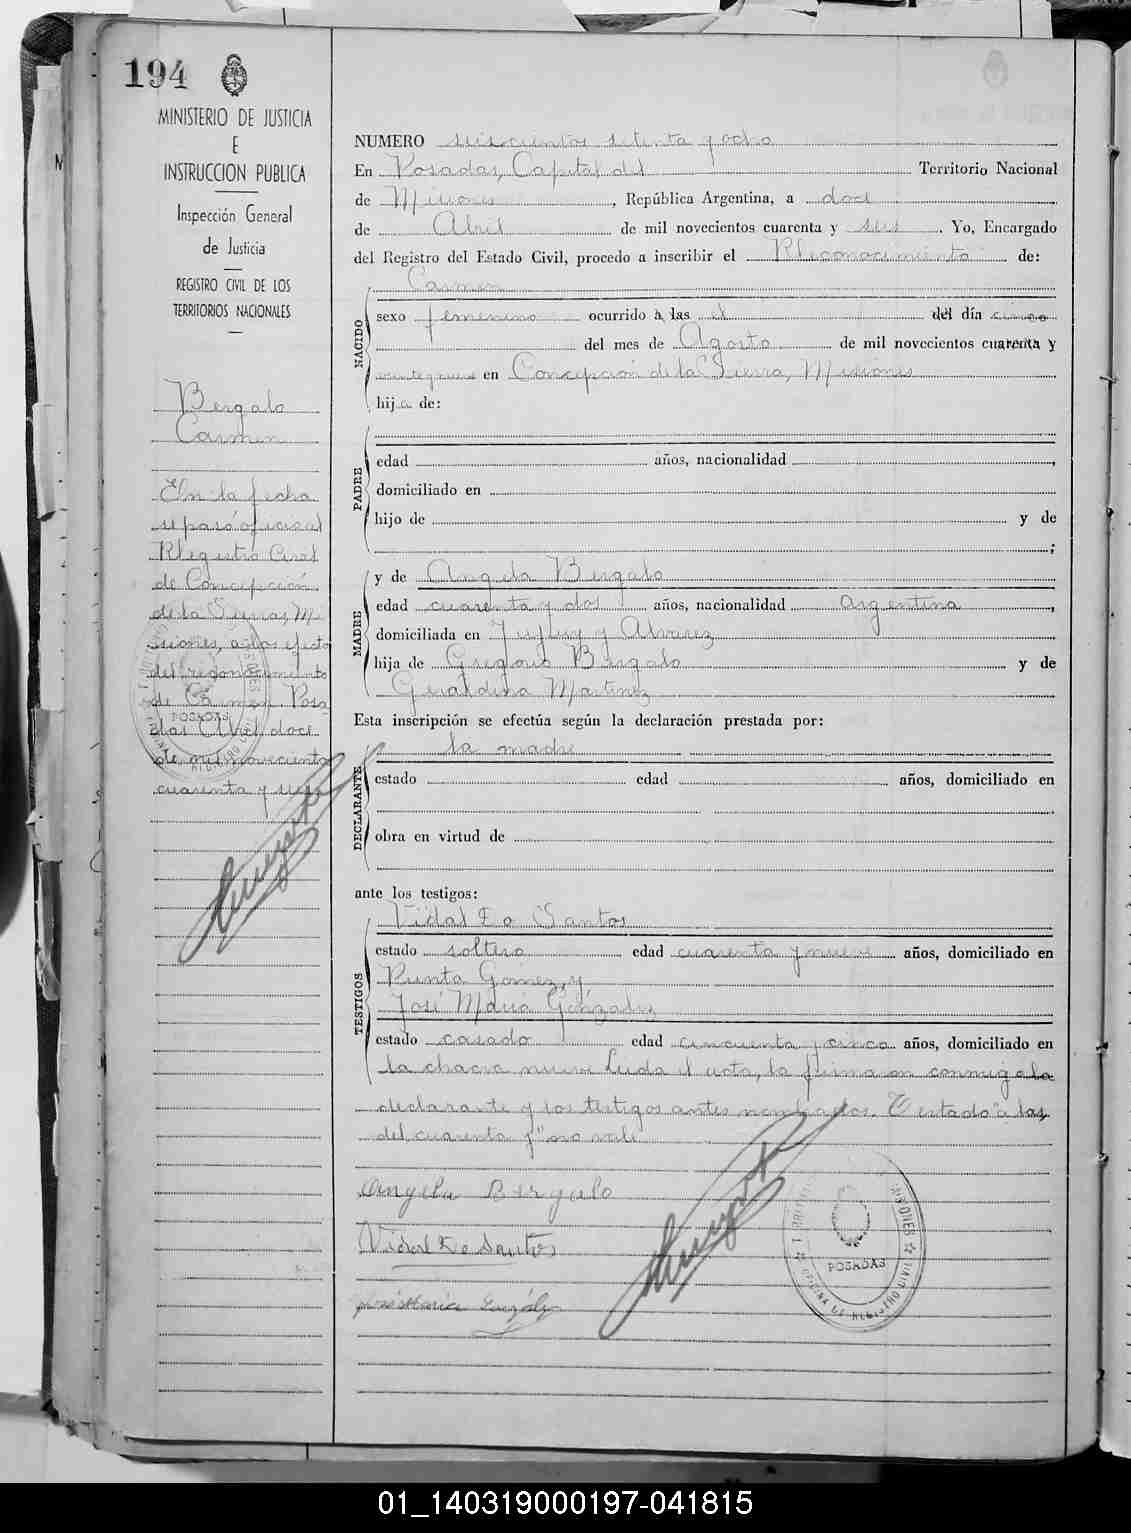 194
MINISTERIO DE JUSTICIA
E
INSTRUCCION PUBLICA
Inspección General
de Justicia
REGISTRO CIVIL DE LOS
TERRITORIOS NACIONALES
Bergalo
Carmen
En la fecha
se pasó oficio al
Registro Civil
de Concepción
de la Sierra, Mi
siones, a los efectos
del reconocimiento
de Carmen. Posa-
das Abril doce
de mil novecientos
cuarenta y seis
NUMERO seiscientos setenta y ocho
En Posadas, Capital del Territorio Nacional
de Misiones, República Argentina, a doce
de Abril de mil novecientos cuarenta y seis. Yo, Encargado
del Registro del Estado Civil, procedo a inscribir el Reconocimiento de:
Carmen
NACIDO
sexo femenino ocurrido a las el del día cinco
del mes de Agosto de mil novecientos cuarenta y
veinte y nueve en Concepción de la Sierra, Misiones
hija de:
PADRE
edad años, nacionalidad,
domiciliado en
hijo de y de
;
MADRE
y de Angela Bergalo
edad cuarenta y dos años, nacionalidad argentina,
domiciliada en Jujuy y Alvarez
hija de Gregorio Bergalo y de
Geraldina Martinez
Esta inscripción se efectúa según la declaración prestada por:
la madre
DECLARANTE
estado edad años, domiciliado en
obra en virtud de
ante los testigos:
TESTIGOS
Vidal Do Santos
estado soltero edad cuarenta y nueve años, domiciliado en
Punta Gomez, y
José Maria Gonzalez
estado casado edad cincuenta y cinco años, domiciliado en
la chacra nueve Leida el acta, la firmaron conmigo la
declarante y los testigos antes nombrados. Testado "a las,
del, cuarenta y" no vale
Angela Bergalo
Vidal Do Santos
José Maria Gonzálz
POSADAS
OFICINA DE REGISTRO CIVIL
POSADAS
01_140319000197-041815